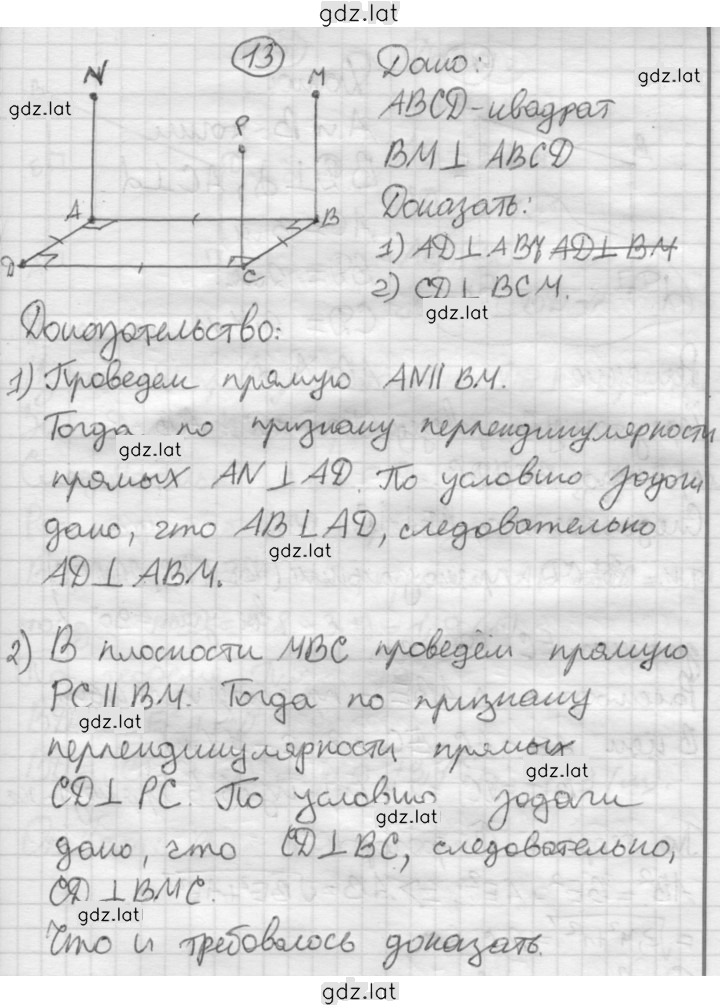 gdz.lat
13
Дано:
gdz.lat
N
M
gdz.lat
ABCD-квадрат
P
BM⊥ ABCD
A
B
Доказать:
1) AD⊥ ABM AD⊥ BM
D
C
2) CD⊥ BCM.
gdz.lat
Доказательство:
1) Проведем прямую AN∥BM.
Тогда по признаку перпендикулярности
gdz.lat
прямых AN⊥AD. По условию задачи
дано, что AB⊥AD, следовательно
gdz.lat
AD⊥ABM.
2) В плоскости MBC проведём прямую
PC∥BM. Тогда по признаку
gdz.lat
перпендикулярности прямых
gdz.lat
CD⊥ PC. По условию задачи
gdz.lat
дано, что CD⊥BC, следовательно,
CD⊥BMC.
gdz.lat
Что и требовалось доказать.
gdz.lat